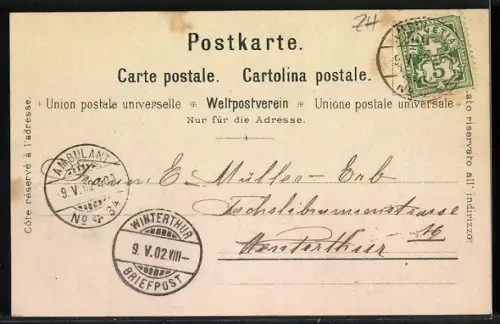 ZH
Postkarte.
Carte postale. Cartolina postale.
Union postale universelle * Weltpostverein * Unione postale universale
Nur für die Adresse.
Côte réservé à l'adresse.
lato riservato all' indirizzo
HELVETIA
5
AMBULANT
9.V.02
No
WINTERTHUR
9.V.02.VIII–
BRIEFPOST
E. Müller-Erb
16
Winterthur